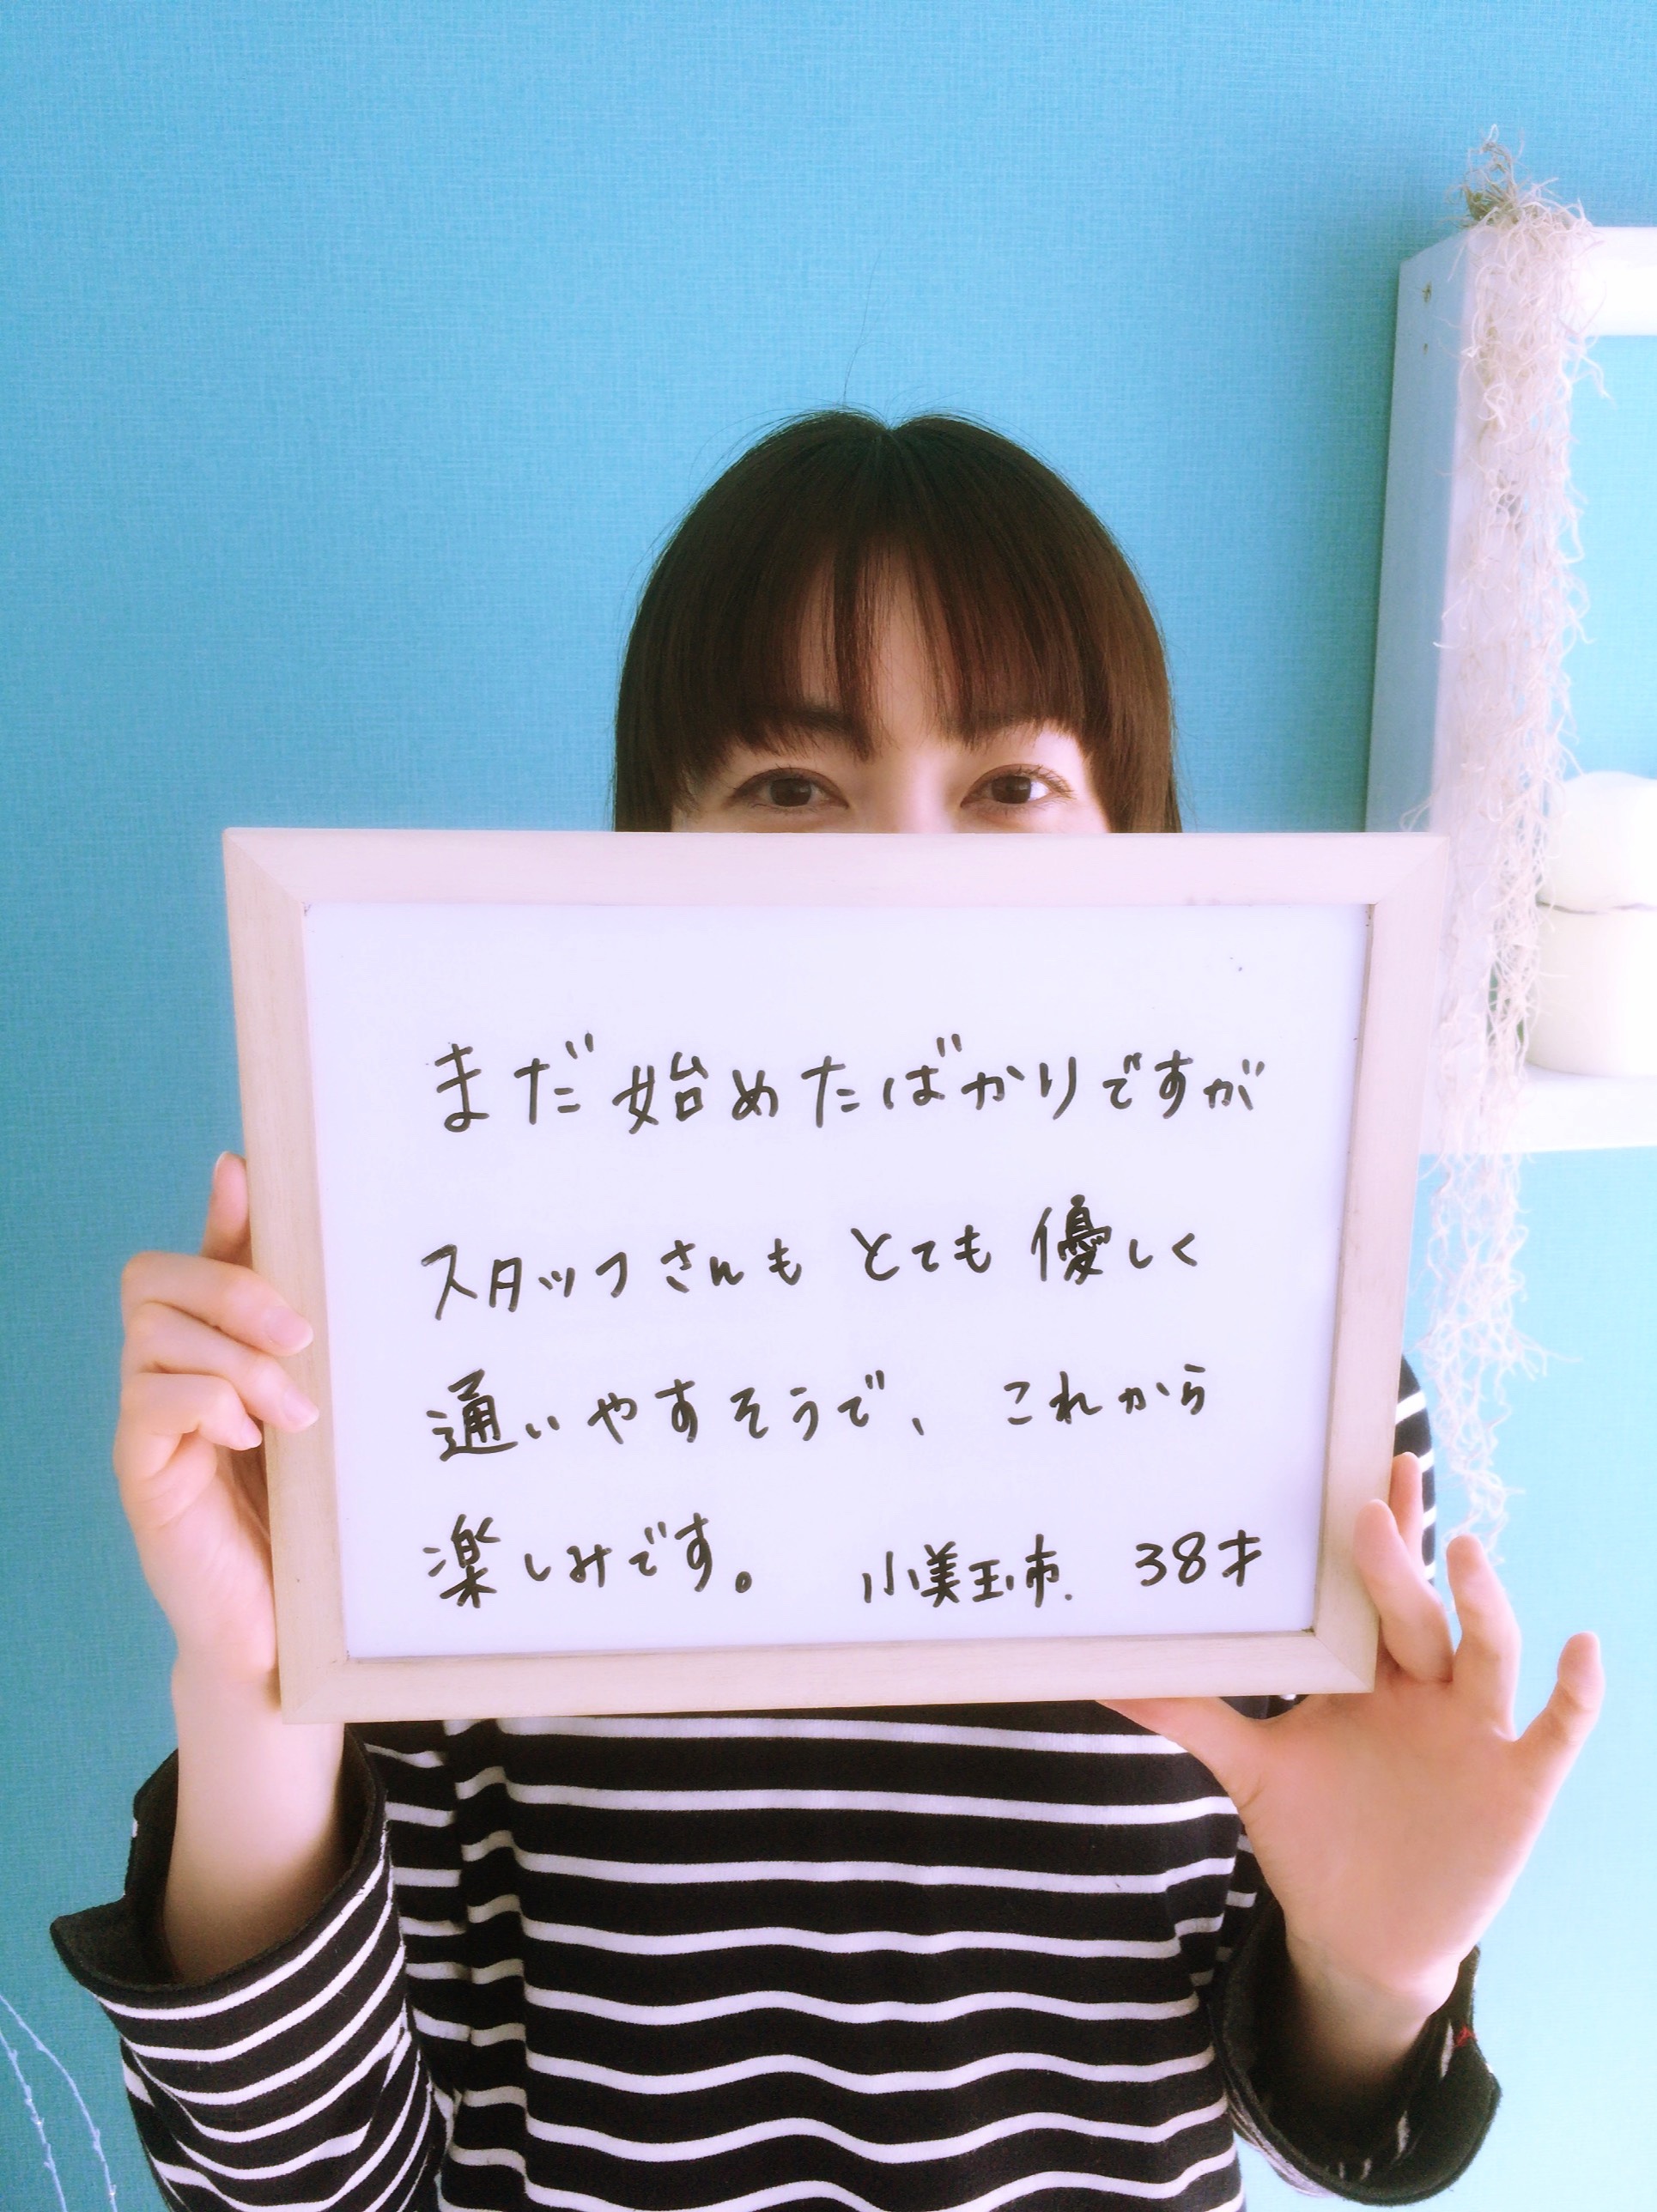 まだ始めたばかりですが
スタッフさんも とても優しく
通いやすそうで、これから
楽しみです。 小美玉市. 38才